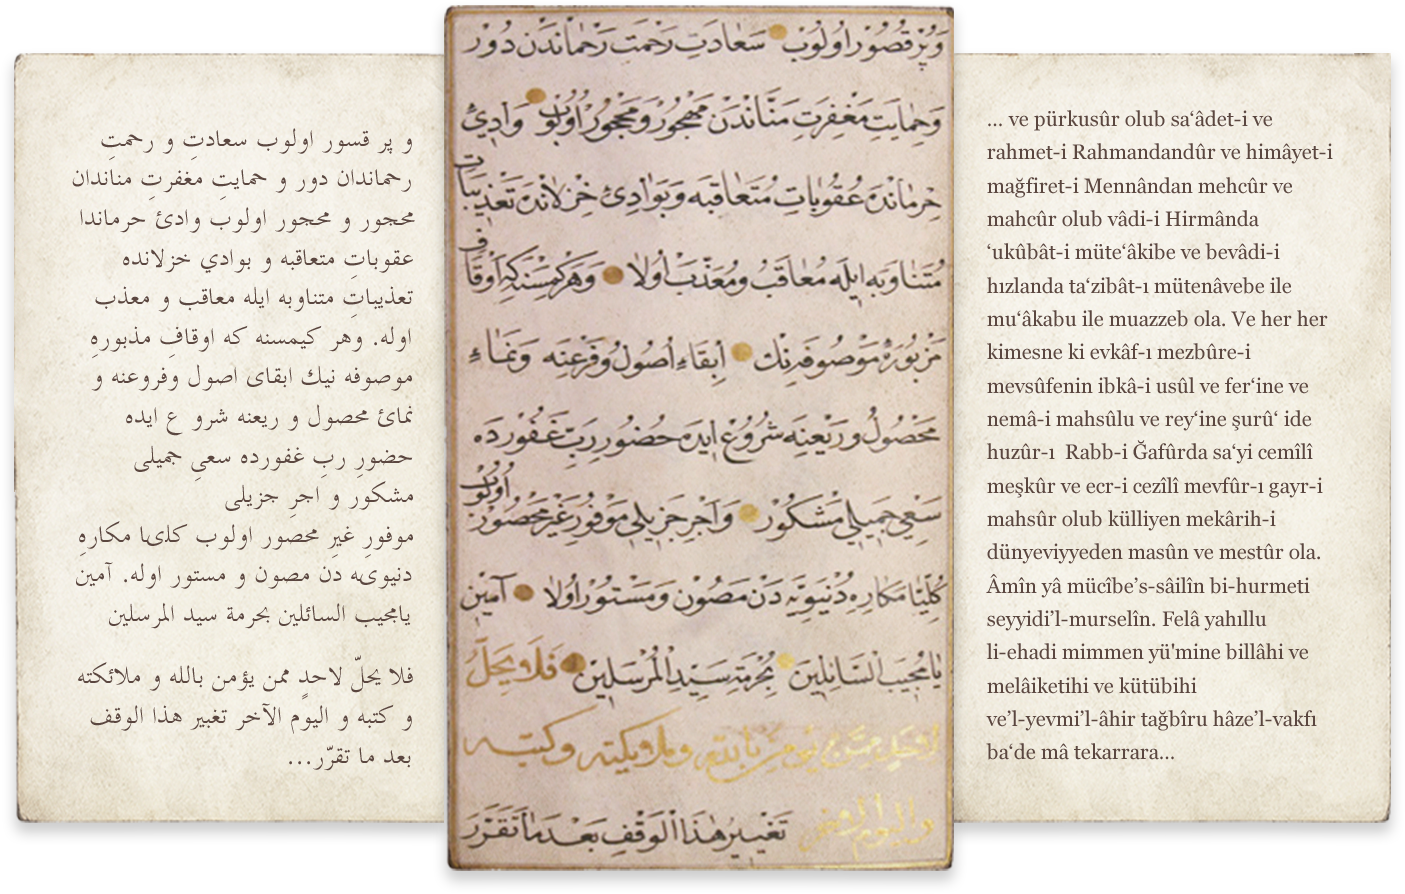 و پر قسور اولوب سعادتِ و رحمتِ
رحماندان دور و حمايتِ مغفرتِ مناندان
محجور و محجور اولوب وادئ حرماندا
عقوباتِ متعاقبه و بوادي خزلانده
تعذيباتِ متناوبه ايله معاقب و معذب
اوله. وهر كيمسنه كه اوقافِ مذبورهِ
موصوفه نيك ابقای اصول وفروعنه و
نمائ محصول و ريعنه شرو ع ايده
حضورِ ربِ غفورده سعیِ جميلی
مشكور و اجرِ جزيلی
موفورِ غيرِ محصور اولوب كلىا مكارهِ
دنيوىه دن مصون و مستور اوله. آمين
يامجيب السائلين بحرمة سيد المرسلين
فلا يحلّ لاحدٍ ممن يؤمن بالله و ملائكته
و كتبه و اليوم الآخر تغيير هذا الوقف
بعد ما تقرّر...
وَپُرْ قُصُوْر اُولُوبْ سَعَادَتِ رَحْمَتِ رَحْمَانْدَنْ دُوْر
وَحِمَايَتِ مَغْفِرَتِ مَنَّانْدَنْ مَهْجُوْر وَمَحْجُوْر اُوْلُوبْ وَادِئ
حِرْمَانْدَنْ عُقُوبَاتِ مُتَعَاقِبَه وَبَوَادِئ خِزْلَانْدَنْ تَعْذِيبَاتِ
مُتَنَاوِبَه اِيلَه مُعَاقَبْ وَمُعَذَّبْ اُولَا وَهَرْ كِمْسَنَه كِه اَوْقَافِ
مَزْبُورَهٔ مَوْصُوفَه نِكْ اِبْقَاءِ اُصُولْ وَفَرْعِنَه وَنَمَاءِ
مَحْصُولْ وَرَيْعِنَه شُرُوعْ اِيدَه حُضُورِ رَبِّ غَفُورْدَه
سَعْيِ جَمِيلِي مَشْكُورْ وَاَجْرِ جَزِيلِي مَوْفُورِ غَيْرِ مَحْصُورْ اُولُوبْ
كُلِّيًا مَكَارِهِ دُنْيَوِيَّه دَنْ مَصُونْ وَمَسْتُورْ اُولَا آمِينَ
يَا مُجِيبَ السَّائِلِينَ بِحُرْمَةِ سَيِّدِ الْمُرْسَلِينَ فَلَا يَحِلُّ
لِاَحَدٍ مِمَّنْ يُؤمِنُ بِاللهِ وَمَلَائِكَتِهِ وَكُتُبِهِ
وَالْيَوْمِ تَغْيِيرُ هٰذَا الْوَقْفِ بَعْدَ مَا تَقَرَّرَ
... ve pürkusûr olub sa‘âdet-i ve
rahmet-i Rahmandandûr ve himâyet-i
mağfiret-i Mennândan mehcûr ve
mahcûr olub vâdi-i Hirmânda
‘ukûbât-i müte‘âkibe ve bevâdi-i
hızlanda ta‘zibât-ı mütenâvebe ile
mu‘âkabu ile muazzeb ola. Ve her her
kimesne ki evkâf-ı mezbûre-i
mevsûfenin ibkâ-i usûl ve fer‘ine ve
nemâ-i mahsûlu ve rey‘ine şurû‘ ide
huzûr-ı Rabb-i Ğafûrda sa‘yi cemîlî
meşkûr ve ecr-i cezîlî mevfûr-ı gayr-i
mahsûr olub külliyen mekârih-i
dünyeviyyeden masûn ve mestûr ola.
Âmîn yâ mücîbe’s-sâilîn bi-hurmeti
seyyidi’l-murselîn. Felâ yahıllu
li-ehadi mimmen yü'mine billâhi ve
melâiketihi ve kütübihi
ve’l-yevmi’l-âhir tağbîru hâze’l-vakfı
ba‘de mâ tekarrara...